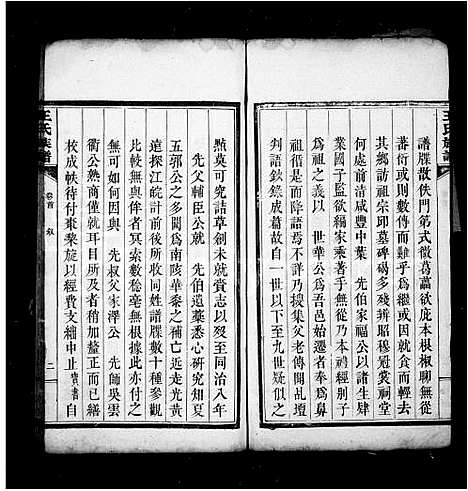 王氏族譜
譜牒散佚門第式微葛藟欲庇本根椒聊無從
蕃衍或而則數傳而難乎為繼或因官而輕去
其鄉訪祖宗邱墓碑碣多殘辨昭穆冠裳祠堂
何處前清咸豐中葉 先伯家福公以諸生肄
業國子監欲編家乘于無從乃本 禮經別子
為祖之義以 世華公為吾邑始遷者奉為鼻
祖循是而降語焉不詳乃搜集父老傳聞與壇
判語欽錄成篇故自一世以下至九世疑似之
點莫可究詰草創未就賫志以歿至同治八年
先父輔臣公就 先伯遺藁悉心研究知夏
五郭公之多闕為南陔華黍之補亡近走光黃
遠探江皖計前後所得同姓譜牒數十種參觀
比較無與俾者冥索數稔毫無端緒憤而中輟
無可如何因與 先叔父家澤公 先師吳雲
衢公熱商僅就耳目所及者稍加釐正而已繕
校成帙待付棗黎旋以經費支絀中止 書自
王氏族譜
卷首 敘
二